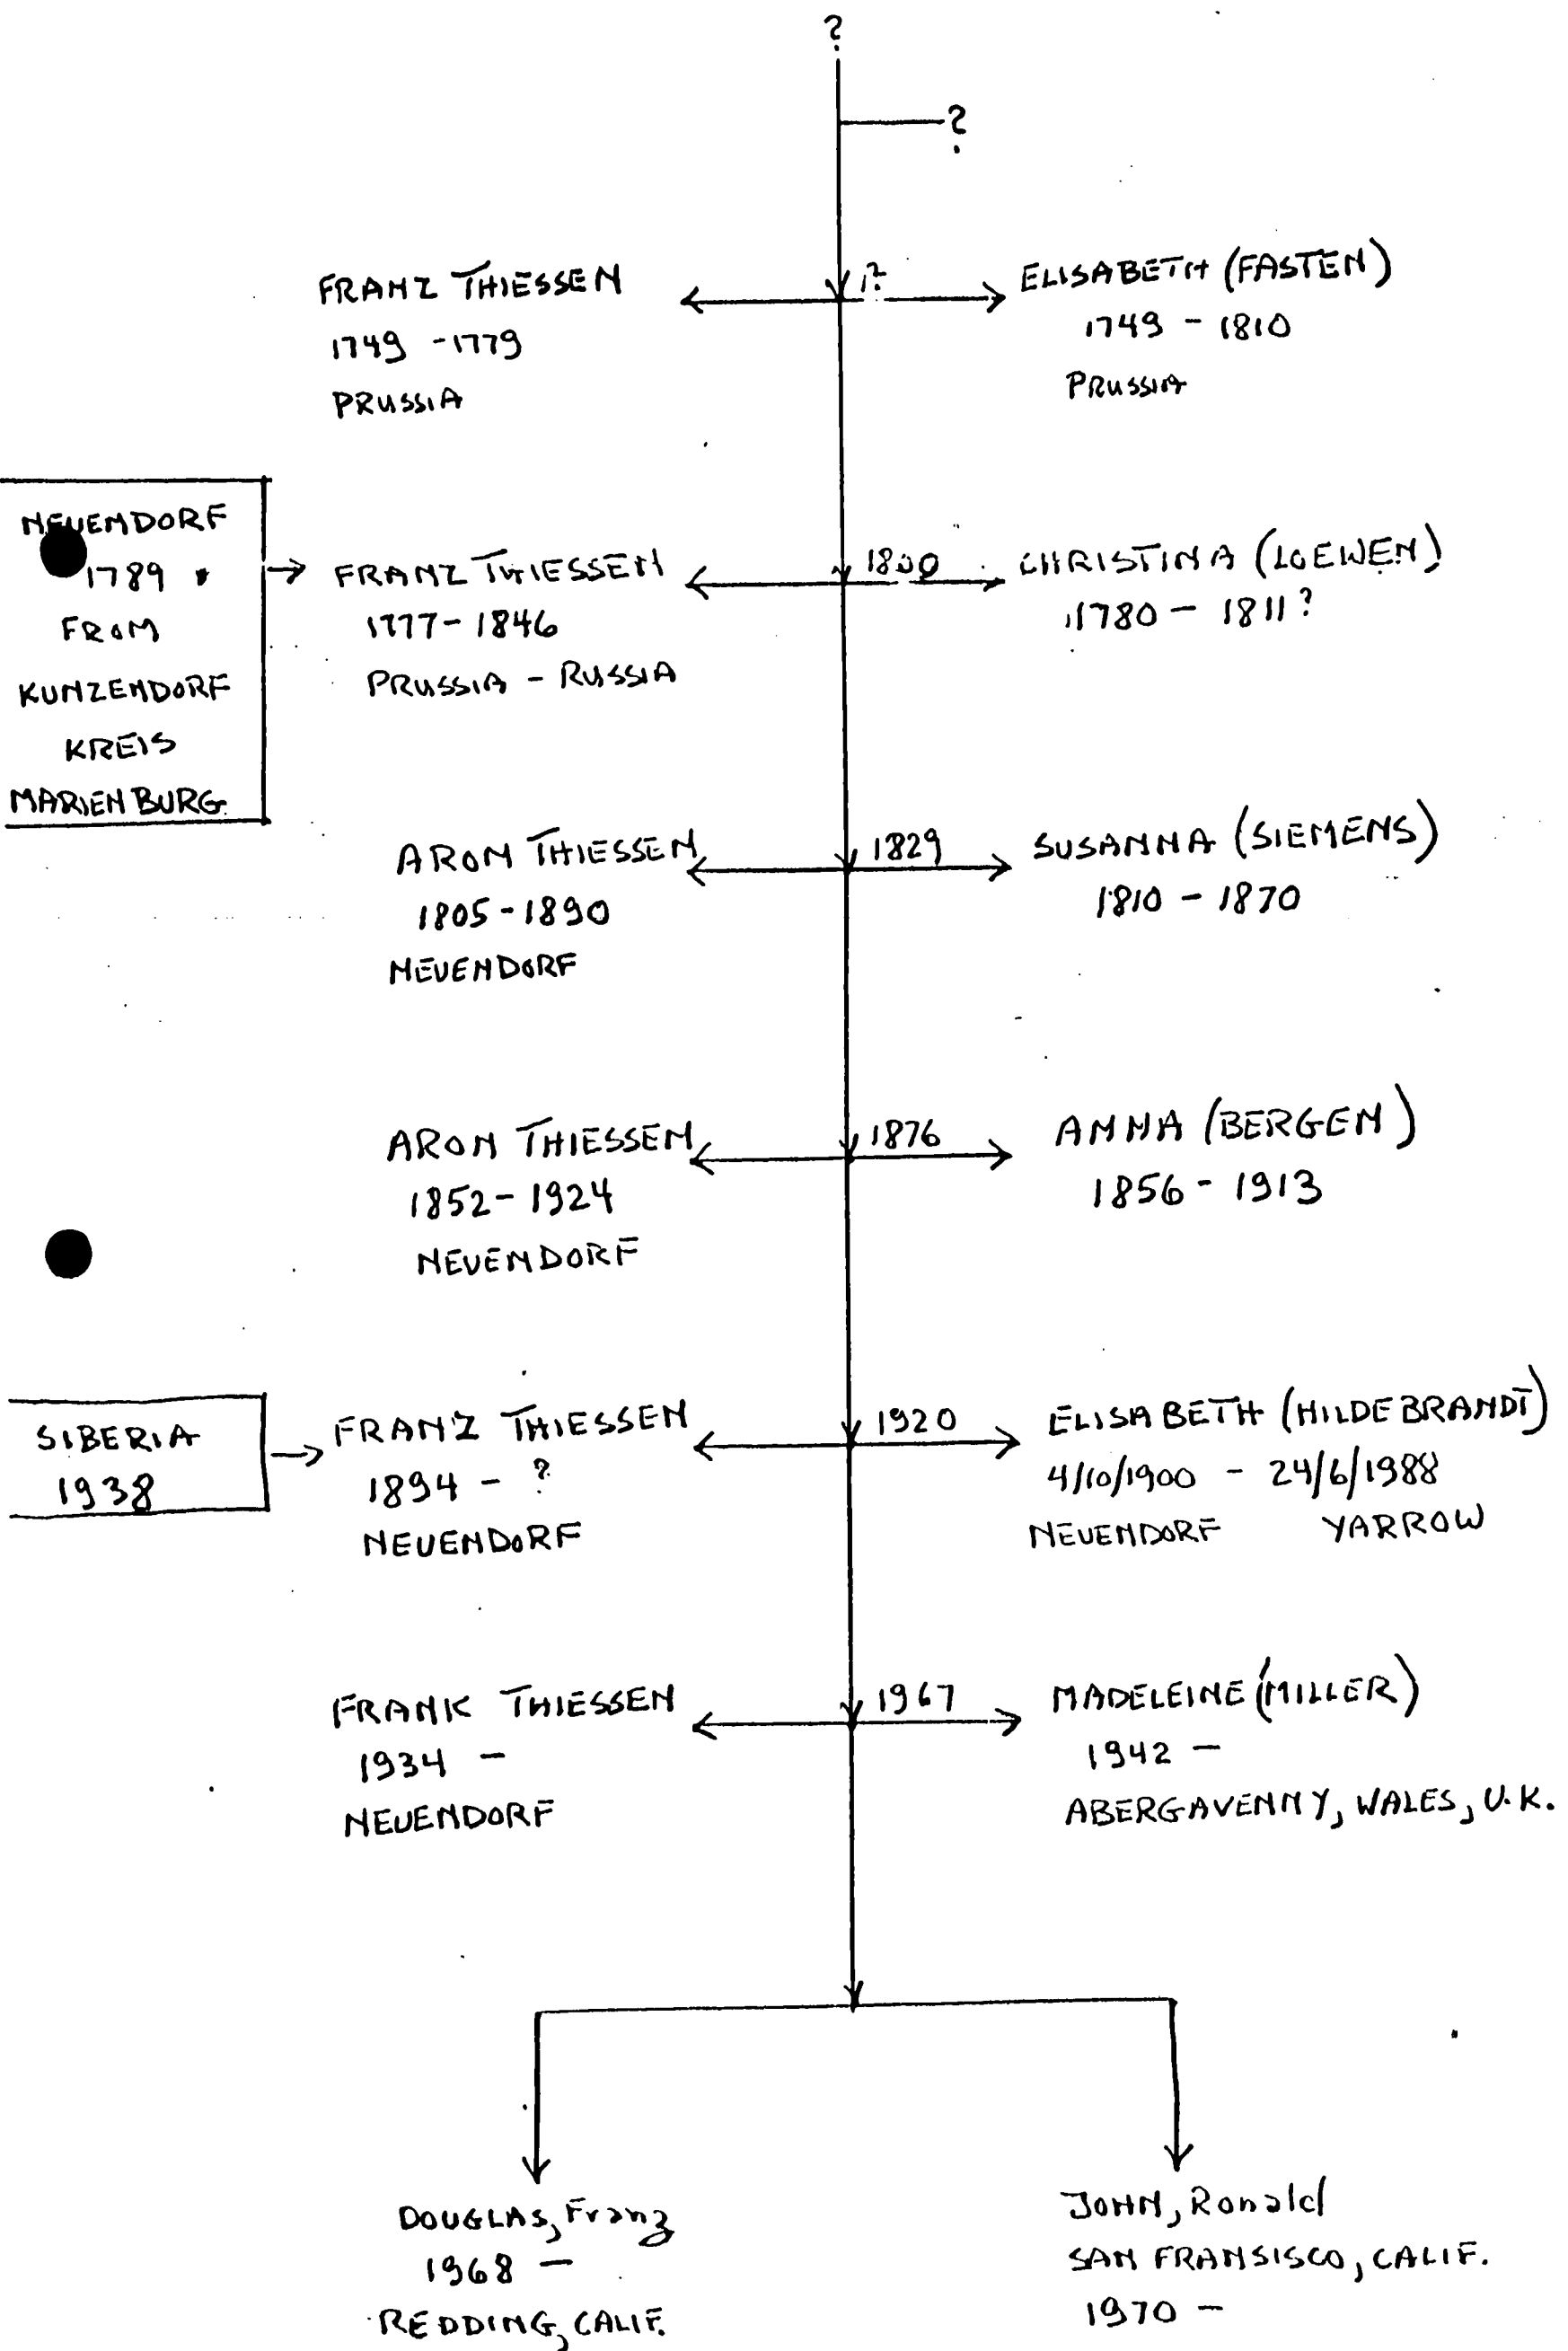 ?
?
FRANZ THIESSEN
1749 - 1779
PRUSSIA
?
ELISABETH (FASTEN)
1749 - 1810
PRUSSIA
NEUENDORF
1789
FROM
KUNZENDORF
KREIS
MARIENBURG.
FRANZ THIESSEN
1777 - 1846
PRUSSIA - RUSSIA
1800
CHRISTINA (LOEWEN)
1780 - 1811?
ARON THIESSEN
1805 - 1890
NEUENDORF
1829
SUSANNA (SIEMENS)
1810 - 1870
ARON THIESSEN
1852 - 1924
NEUENDORF
1876
ANNA (BERGEN)
1856 - 1913
SIBERIA
1938
FRANZ THIESSEN
1894 - ?
NEUENDORF
1920
ELISABETH (HILDEBRANDT)
4/10/1900 - 24/6/1988
NEUENDORF YARROW
FRANK THIESSEN
1934 -
NEUENDORF
1967
MADELEINE (MILLER)
1942 -
ABERGAVENNY, WALES, U.K.
DOUGLAS, Franz
1968 -
REDDING, CALIF.
JOHN, Ronald
SAN FRANSISCO, CALIF.
1970 -